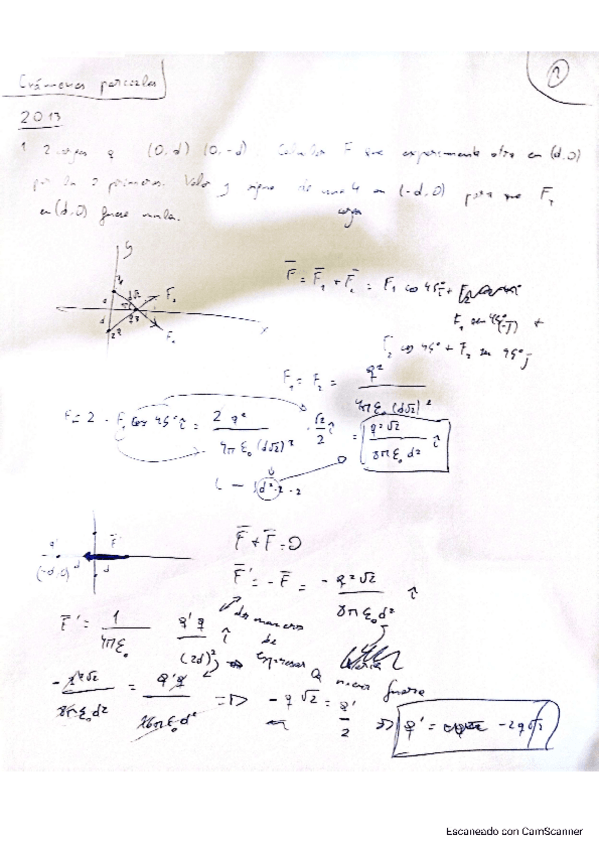 Exámenes parciales
2
2013
1 2 cargas q (0,d) (0,-d). Calcular F que experimenta otra en (d,0)
por las 2 primeras. Valor y signo de una 4 en (-d,0) para que F
carga
en (d,0) fuese nula.
y
F₂
F₁
x
F̄ = F̄₁ + F̄₂ = F₁ cos 45° i +
F₁ sen 45° (-j) +
F₂ cos 45° + F₂ sen 45° j
F₁ = F₂ = q² / 4πε₀ (d√2)²
F = 2 · F₁ cos 45° i = 2 q² / 4πε₀ (d√2)² · √2/2 i = q²√2 / 8πε₀ d² i
d² · 2 · 2
q'
F̄'
(-d,0)
d
F̄ + F̄' = 0
F̄' = -F̄ = - q²√2 / 8πε₀ d² i
F̄' = 1 / 4πε₀ q'q / (2d)² i
dos maneras
de
expresar
nueva fuerza
- q²√2 / 8πε₀ d² = q'q / 16πε₀ d² => - q √2 = q' / 2 => q' = -2q√2
Escaneado con CamScanner